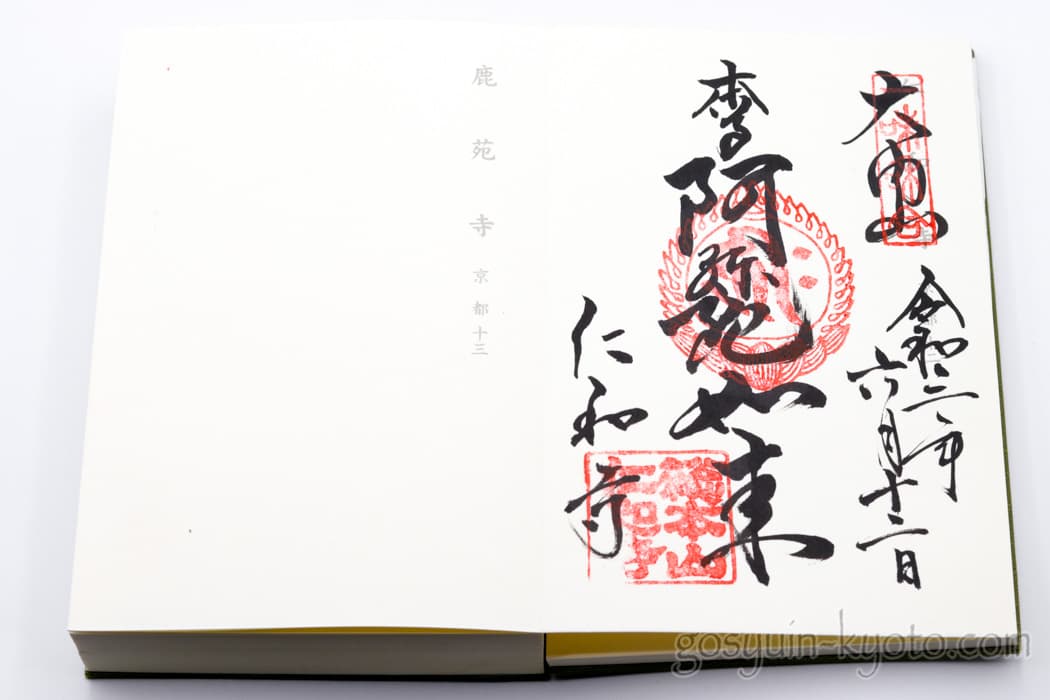 大内山
令和三年
六月十二日
阿弥陀如来
仁和寺
總本山
仁和寺
鹿苑寺 京都十三
gosyuin-kyoto.com